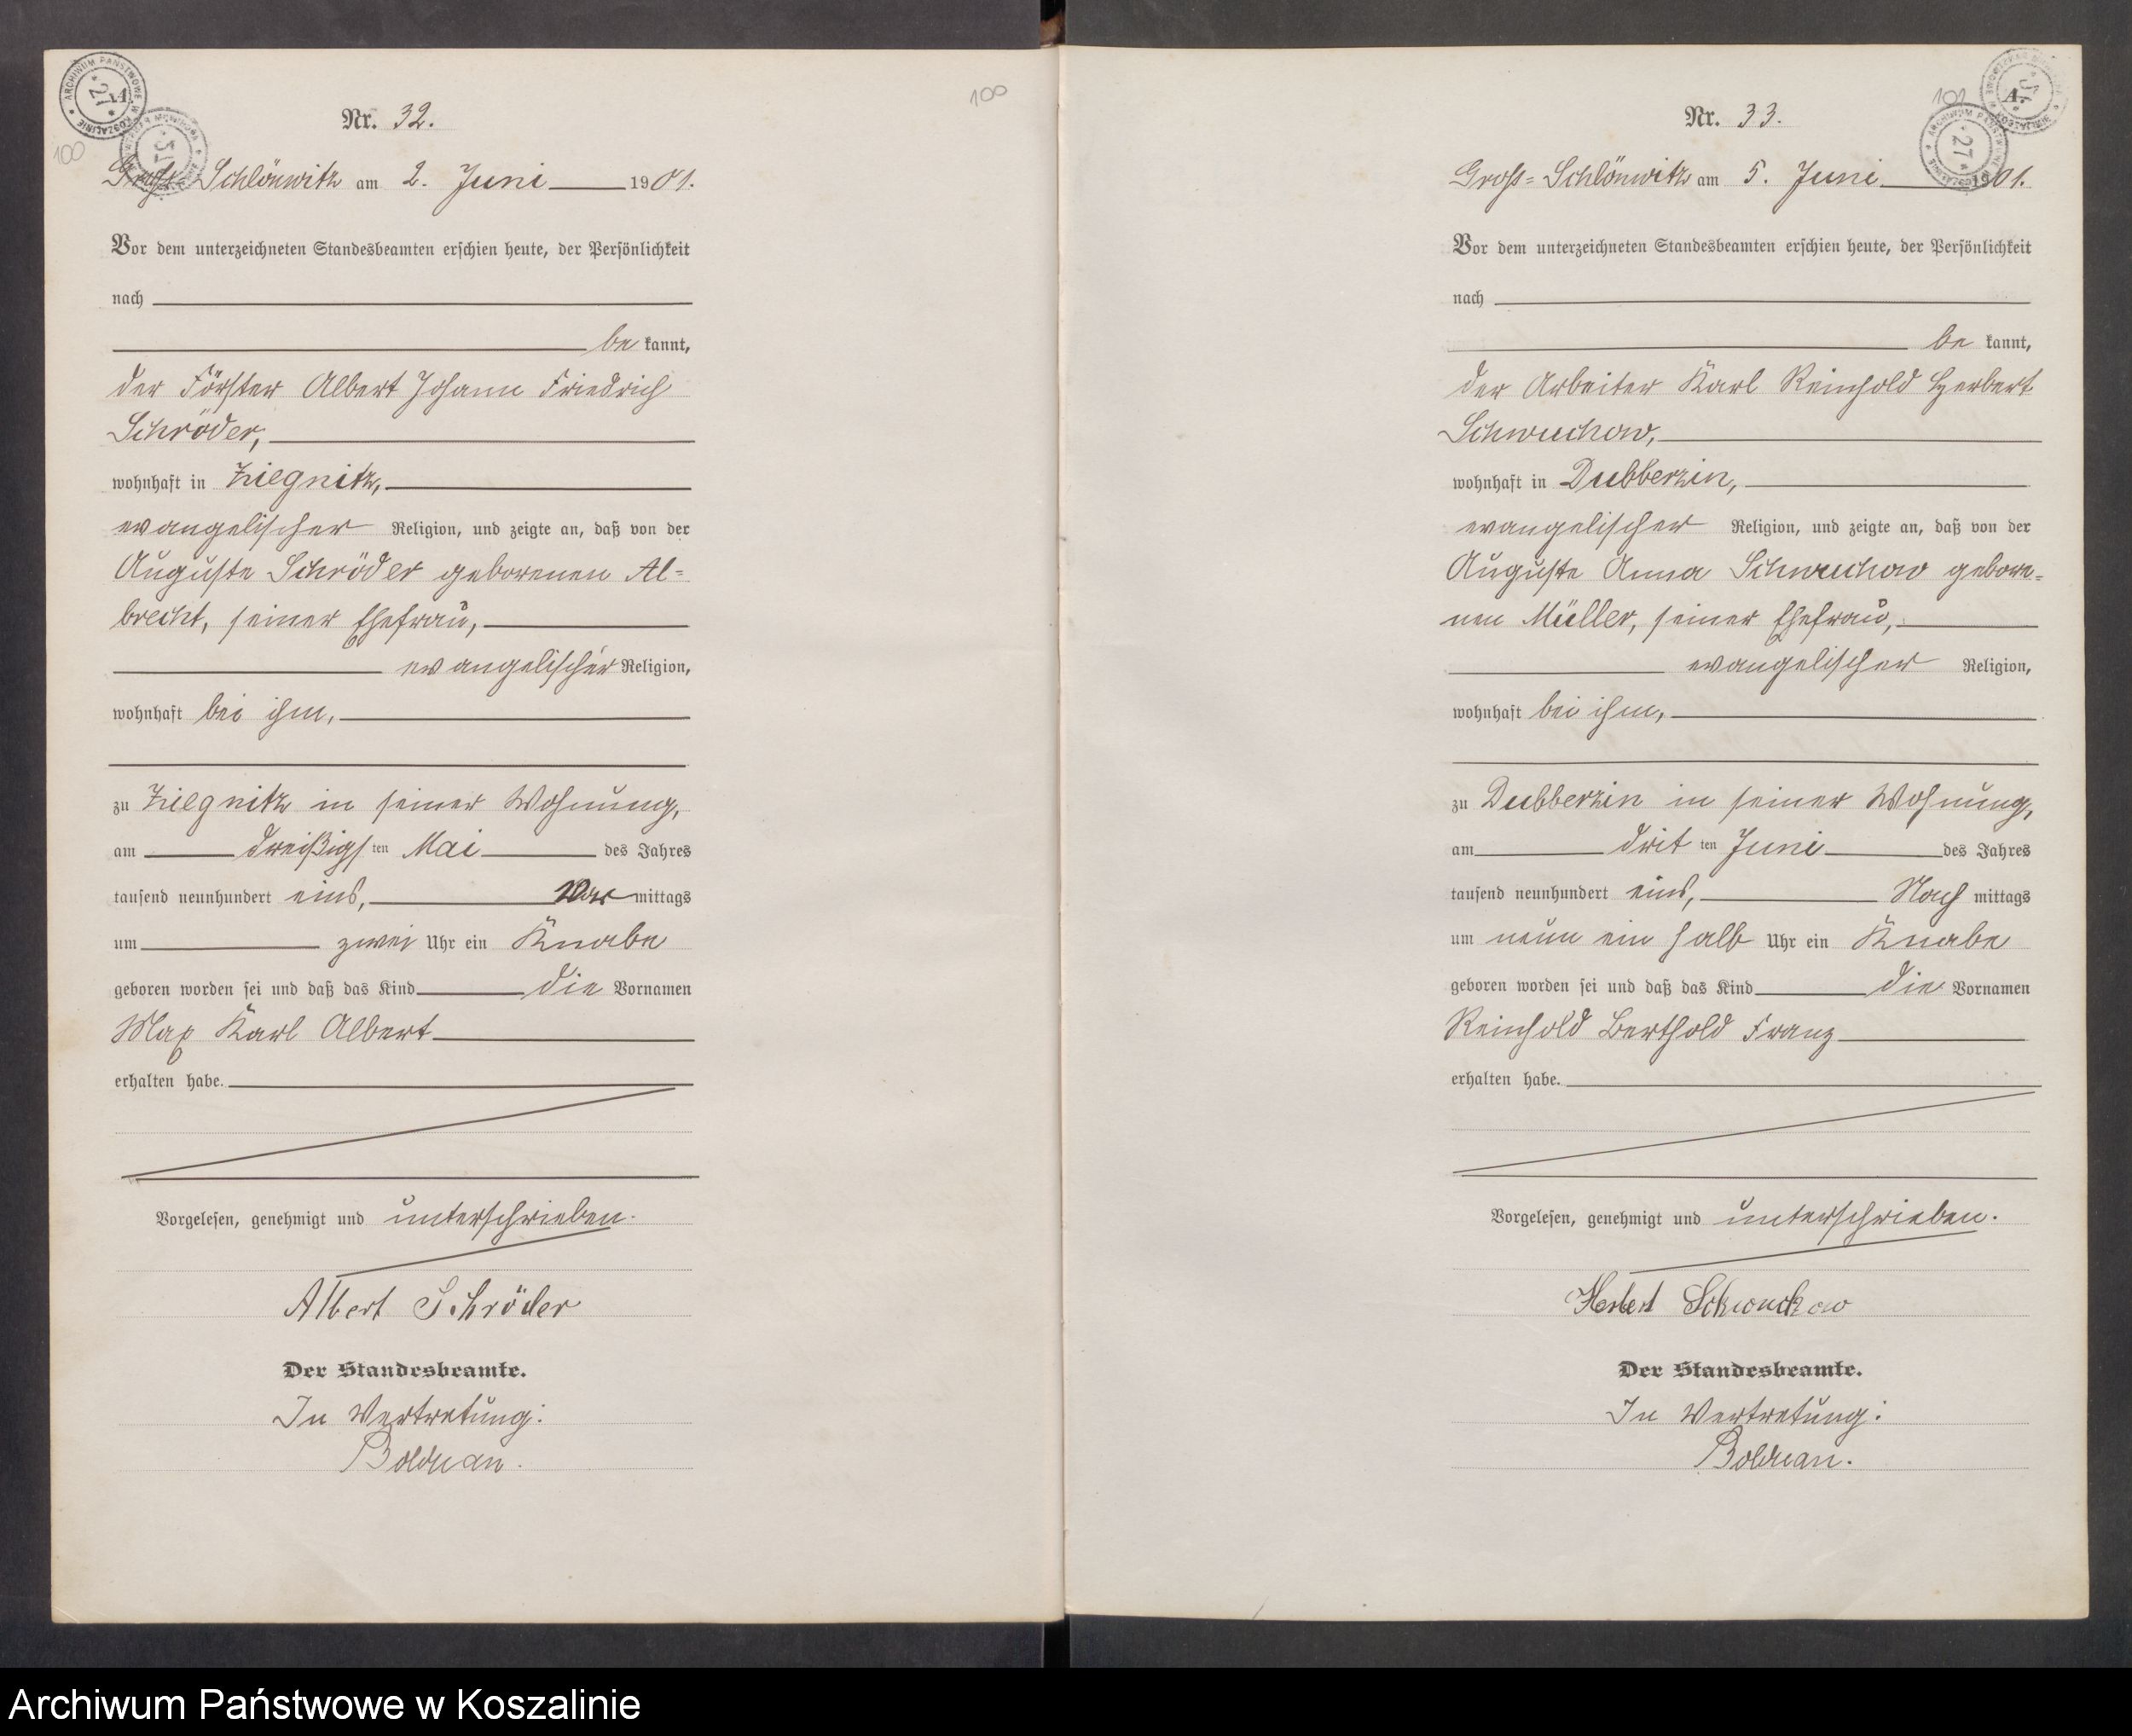 ARCHIWUM PAŃSTWOWE W KOSZALINIE
27
A.
100
Nr. 32.
Groß-Schlönwitz am 2. Juni 1901.
Vor dem unterzeichneten Standesbeamten erschien heute, der Persönlichkeit
nach
be kannt,
der Förster Albert Johann Friedrich
Schröder,
wohnhaft in Ziegnitz,
evangelischer Religion, und zeigte an, daß von der
Auguste Schröder geborenen Al=
brecht, seiner Ehefrau,
evangelischer Religion,
wohnhaft bei ihm,
zu Ziegnitz in seiner Wohnung,
am dreißigs ten Mai des Jahres
tausend neunhundert eins, Vor mittags
um zwei Uhr ein Knabe
geboren worden sei und daß das Kind die Vornamen
Max Karl Albert
erhalten habe.
Vorgelesen, genehmigt und unterschrieben.
Albert Schröder
Der Standesbeamte.
In Vertretung:
Bolduan.
100
101
A.
ARCHIWUM PAŃSTWOWE W KOSZALINIE
27
Nr. 33.
Groß=Schlönwitz am 5. Juni 1901.
Vor dem unterzeichneten Standesbeamten erschien heute, der Persönlichkeit
nach
be kannt,
der Arbeiter Karl Reinhold Herbert
Schwuchow,
wohnhaft in Dubberzin,
evangelischer Religion, und zeigte an, daß von der
Auguste Anna Schwuchow gebore=
nen Müller, seiner Ehefrau,
evangelischer Religion,
wohnhaft bei ihm,
zu Dubberzin in seiner Wohnung,
am drit ten Juni des Jahres
tausend neunhundert eins, Nach mittags
um neun ein halb Uhr ein Knabe
geboren worden sei und daß das Kind die Vornamen
Reinhold Berthold Franz
erhalten habe.
Vorgelesen, genehmigt und unterschrieben.
Herbert Schwuchow
Der Standesbeamte.
In Vertretung:
Bolduan.
Archiwum Państwowe w Koszalinie